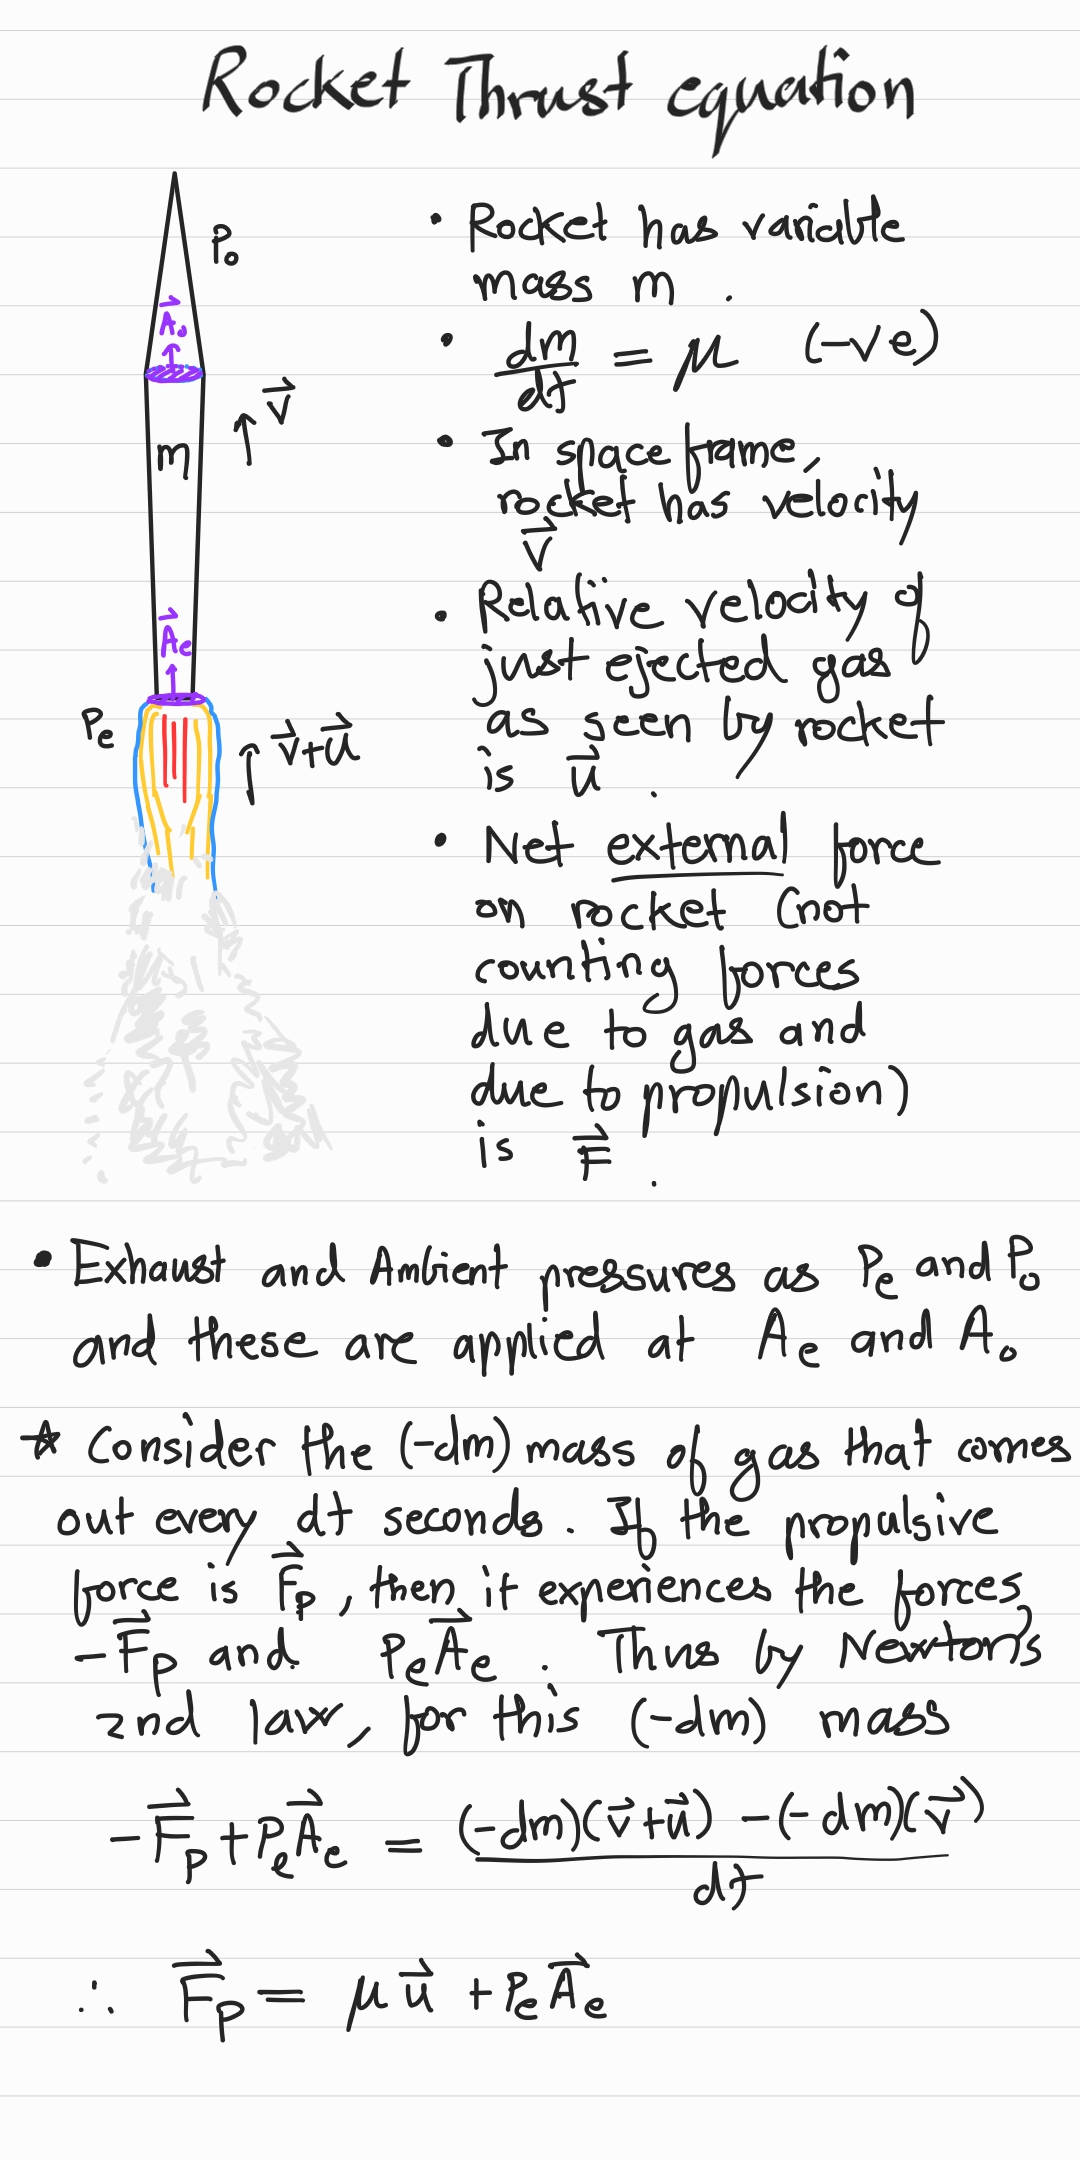 Rocket Thrust equation
P₀
A⃗₀
v⃗
m
A⃗ₑ
Pₑ
v⃗+u⃗
• Rocket has variable
mass m .
• dm/dt = μ (-ve)
• In space frame,
rocket has velocity
v⃗
• Relative velocity of
just ejected gas
as seen by rocket
is u⃗ .
• Net external force
on rocket (not
counting forces
due to gas and
due to propulsion)
is F⃗ .
• Exhaust and Ambient pressures as Pₑ and P₀
and these are applied at Aₑ and A₀
☆ Consider the (-dm) mass of gas that comes
out every dt seconds. If the propulsive
force is F⃗ₚ, then it experiences the forces
-F⃗ₚ and PₑA⃗ₑ . Thus by Newton's
2nd law, for this (-dm) mass
-F⃗ₚ + PₑA⃗ₑ = ((-dm)(v⃗+u⃗) - (-dm)(v⃗))/dt
∴ F⃗ₚ = μu⃗ + PₑA⃗ₑ